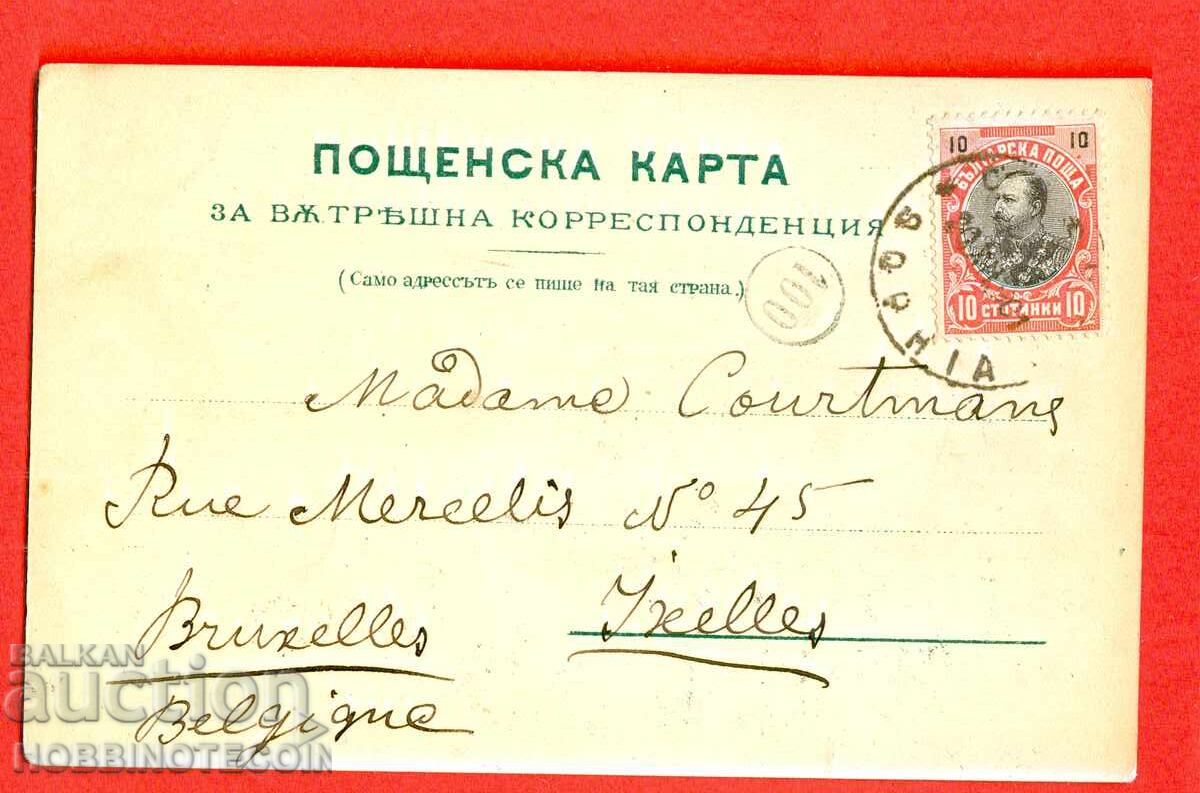 ПОЩЕНСКА КАРТА
ЗА ВѪТРѢШНА КОРРЕСПОНДЕНЦИЯ
(Само адрессътъ се пише на тая страна.)
10 10
БЪЛГАРСКА ПОЩА
10 СТОТИНКИ 10
СОФИЯ
100
Madame Courtmans
Rue Mercelis No 45
Bruxelles Ixelles
Belgique
BALKAN
auction
HOBBINOTECOIN